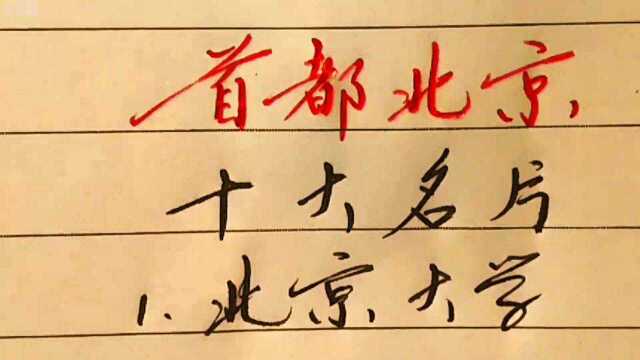 首都北京
十大名片
1.北京大学